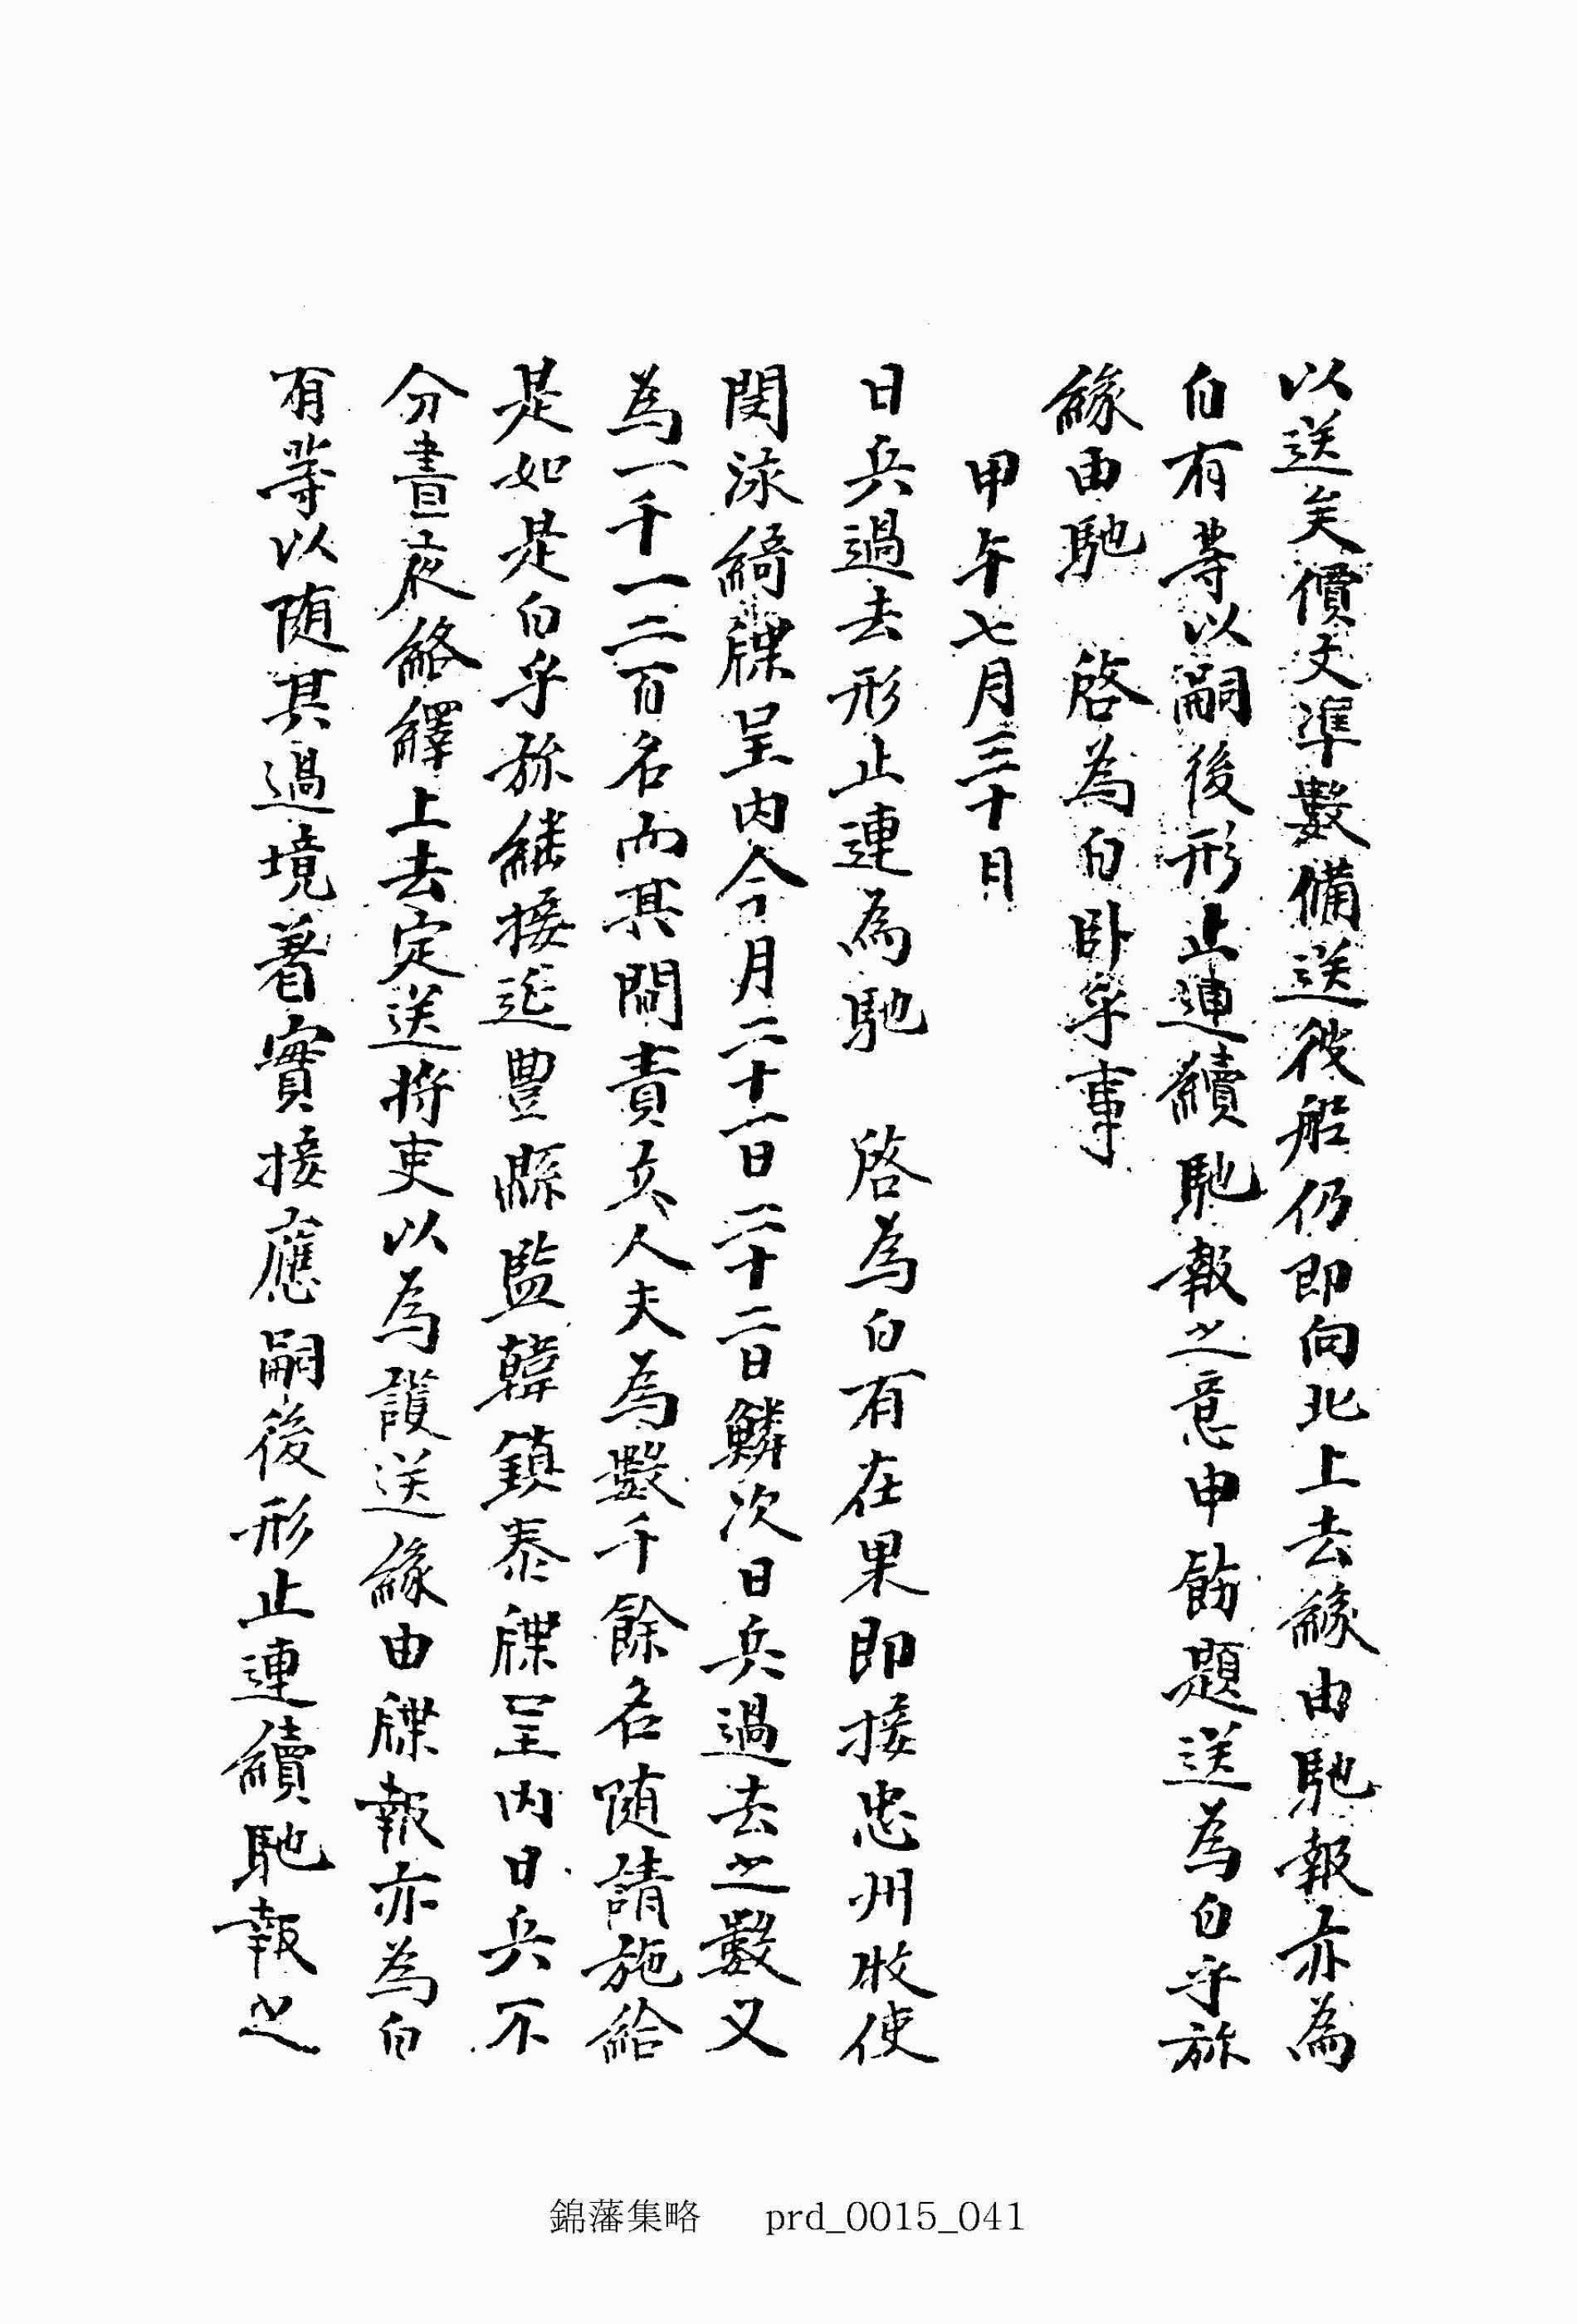 以送矣價文準數備送彼船仍即向北上去緣由馳報亦為
白有等以嗣後形止連續馳報之意申飭題送為白乎旀
緣由馳 啓為白臥乎事
甲午七月三十日
日兵過去形止連為馳 啓為白有在果即接忠州牧使
閔泳綺牒呈內今月二十一日二十二日鱗次日兵過去之數又
為一千一二百名而其間責立人夫為數千餘名隨請施給
是如是白乎旀繼接延豊縣監韓鎮泰牒呈內日兵不
分晝夜絡繹上去定送將吏以為護送緣由牒報亦為白
有等以隨其過境著實接應嗣後形止連續馳報之
錦藩集略 prd_0015_041